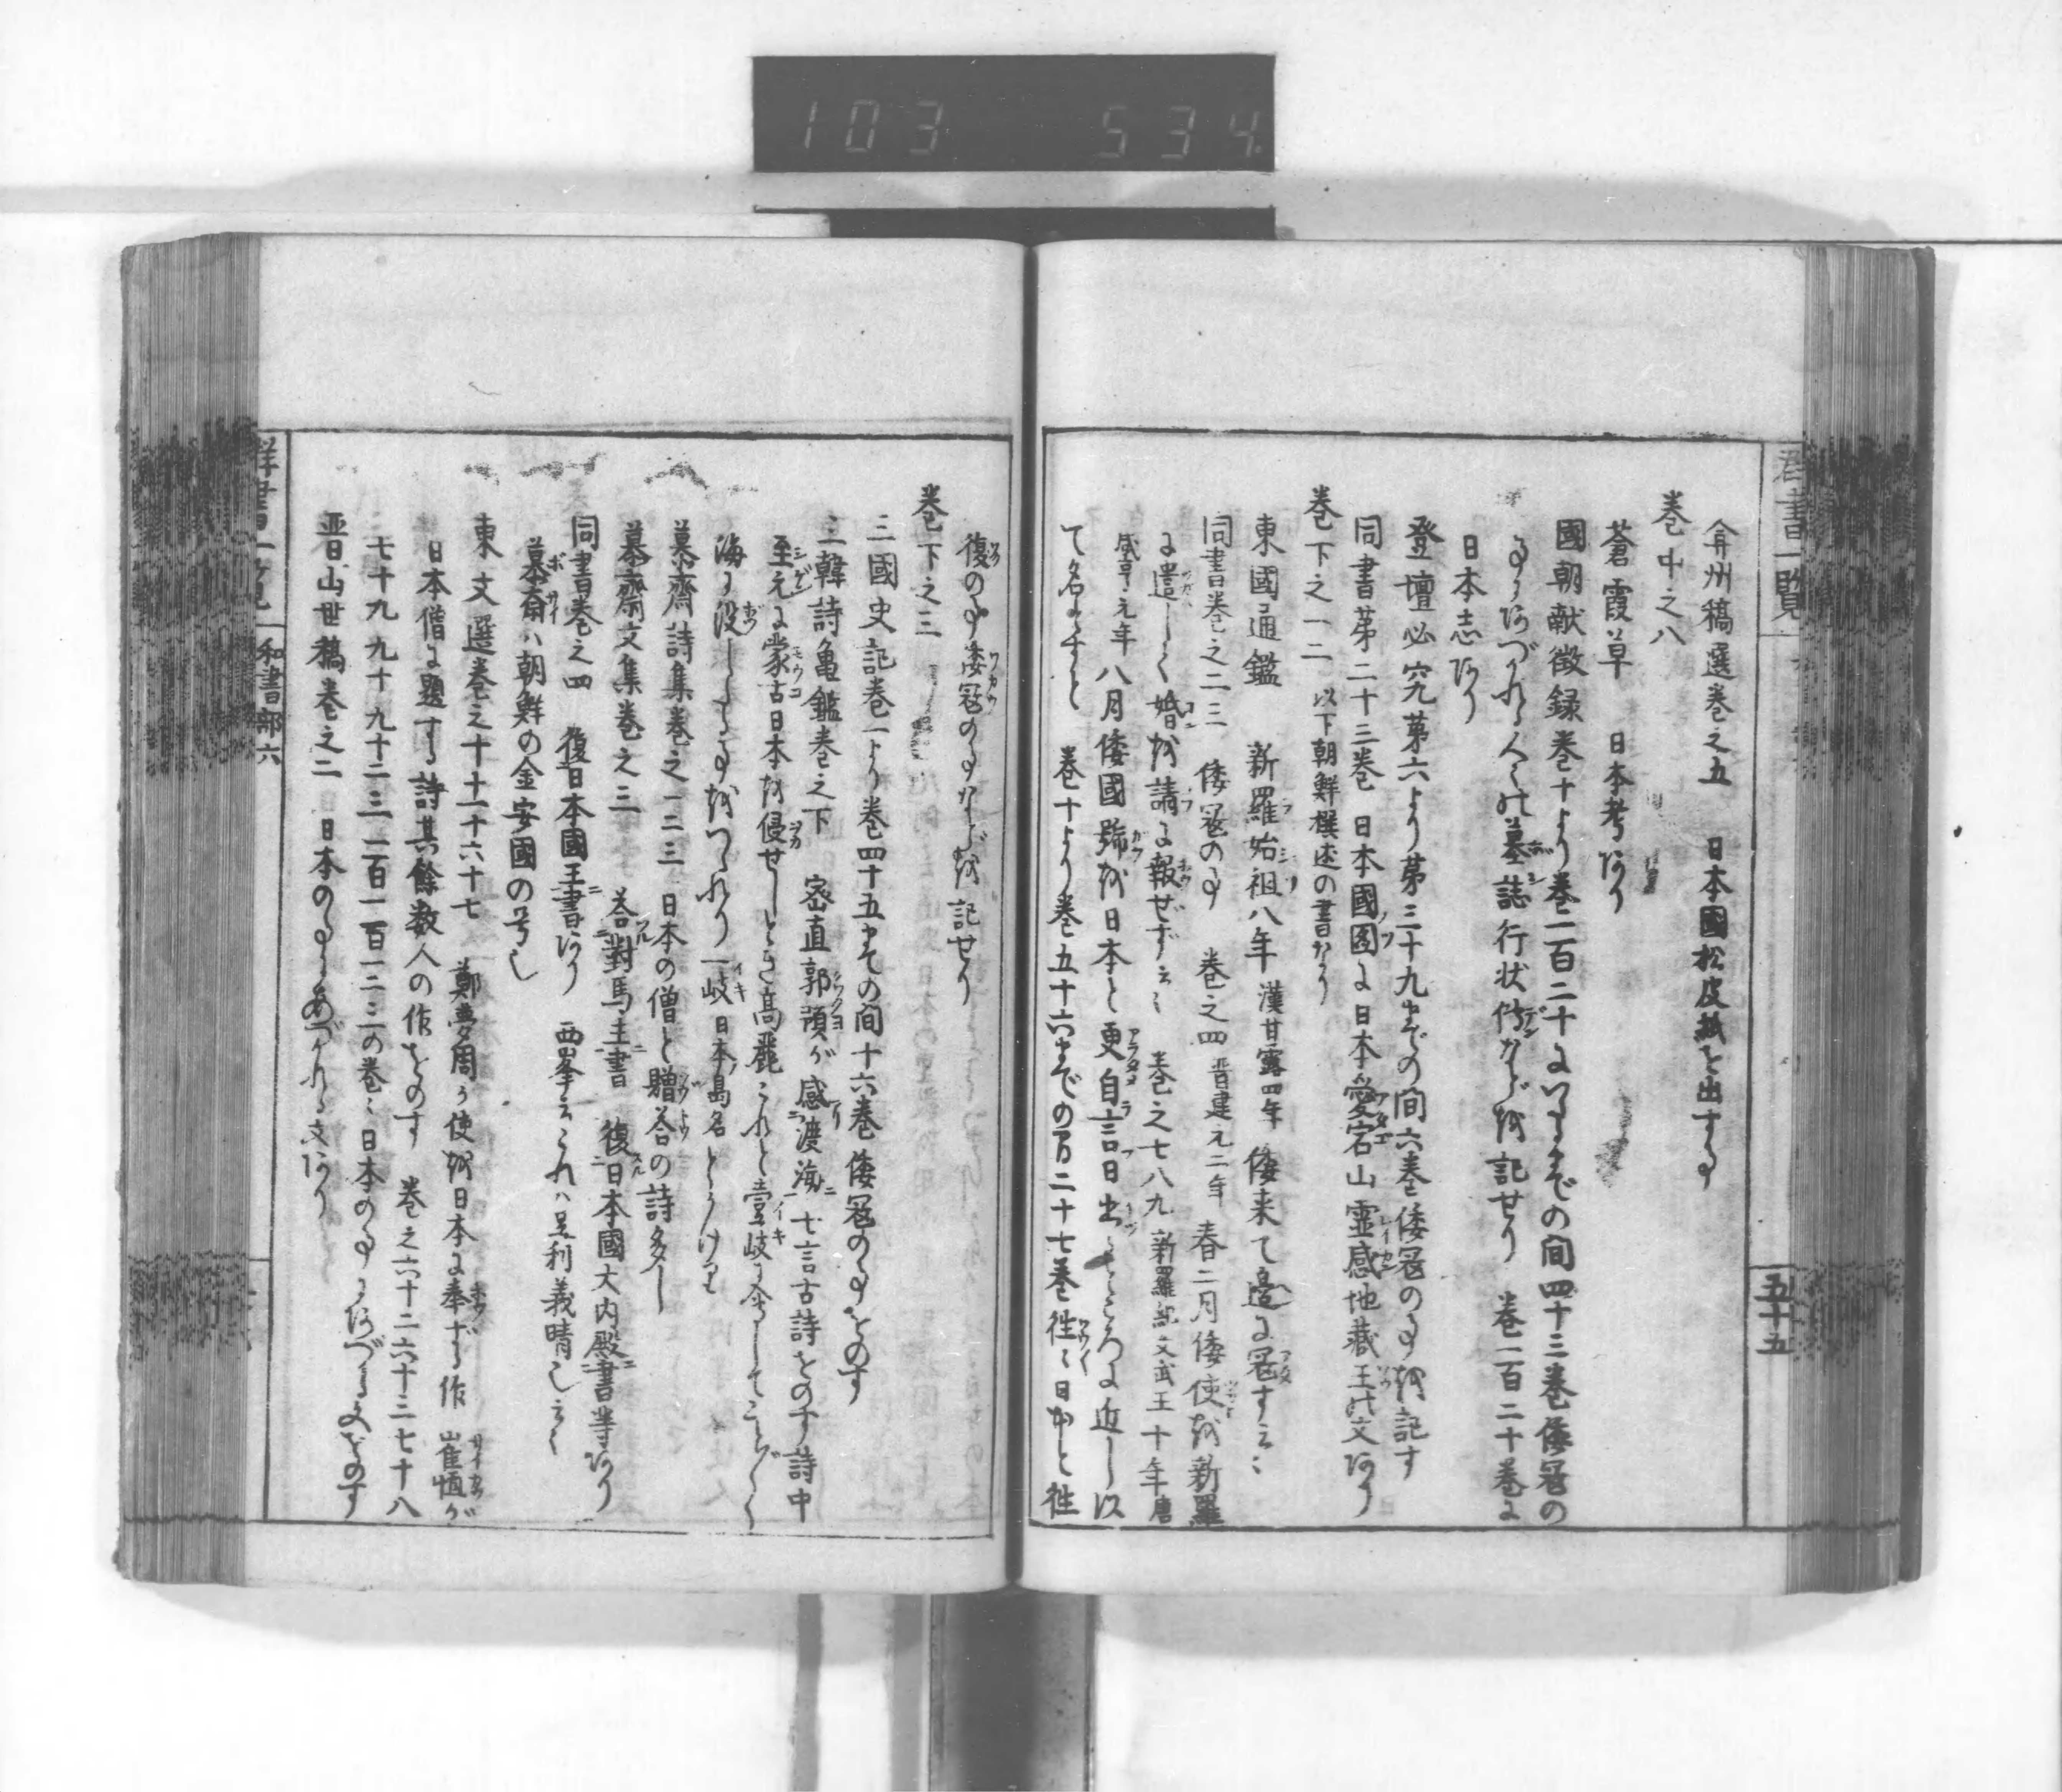 103 534
群書一覧
五十五
弇州稿選巻之五 日本國松皮紙を出する事
巻中之八
蒼霞草 日本考あり
國朝献徴録巻十より巻一百二十にいたるまでの間四十三巻倭冦の
事にあづかれる人々の墓誌行状傳などを記せり 巻一百二十巻に
日本志あり
登壇必究第六より第三十九までの間六巻倭冦の事を記す
同書第二十三巻 日本國圖に日本愛宕山靈感地藏王の文あり
巻下之一二 以下朝鮮撰述の書なり
東國通鑑 新羅始祖八年 漢甘露四年 倭来て邉に冦す云々
同書巻之二三 倭冦の事 巻之四 晋建元二年 春二月倭使を新羅
に遣して婚を請に報ぜず云々 巻之七八九 新羅紀文武王十年唐
咸亨元年 八月倭國號を日本と更自言日出るところに近し以
て名とすと 巻十より巻五十六までの間二十七巻往々日本と往
復の事倭冦の事などを記せり
巻下之三
三國史記巻一より巻四十五までの間十六巻倭冦の事をのす
三韓詩亀鑑巻之下 密直郭預が感渡海七言古詩をのす詩中
至元に蒙古日本を侵せしとき高麗これと壹岐に会してことごとく
海に没したる事をつくれり 一岐日本島名とうけり
慕齋詩集巻之一二三 日本の僧と贈荅の詩多し
慕齋文集巻之三 荅對馬主書 復日本國大内殿書等あり
同書巻之四 復日本國王書あり 西峯云これハ足利義晴也云々
慕齋ハ朝鮮の金安國の号也
東文選巻之十十一十六十七 鄭夢周が使を日本に奉ずる作 崔恒が
日本僧に題する詩其餘数人の作をのす 巻之六十二六十三七十八
七十九九十九十二三一百一百一二三の巻々日本の事にあづかる文をのす
晋山世稿巻之二 日本の事にあづかれる文あり
群書一覧
和書部六